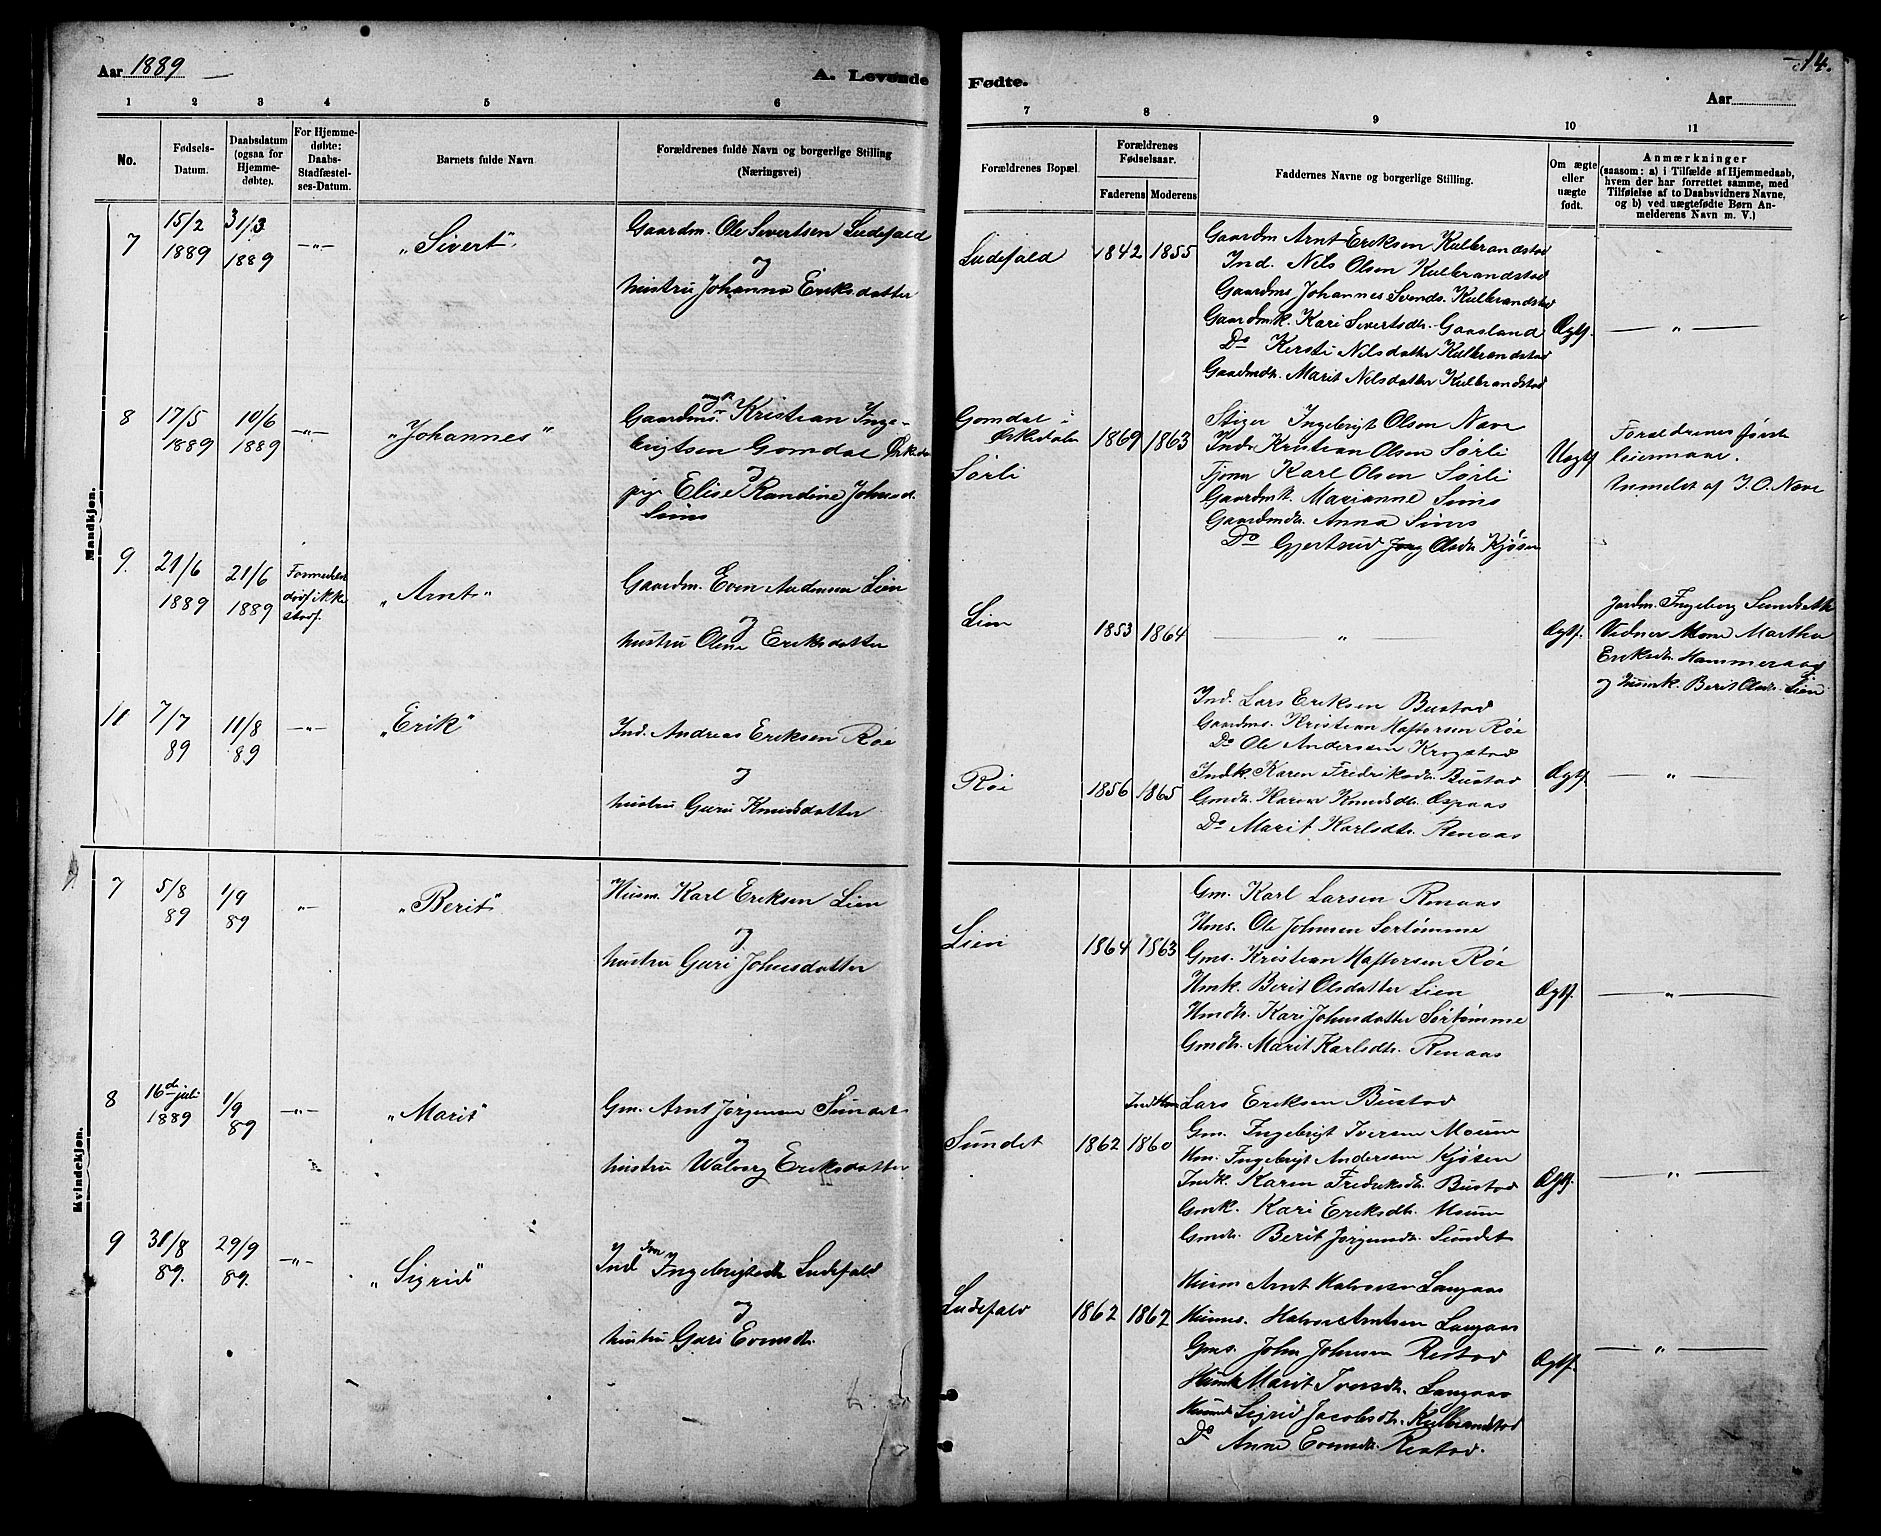 Aar 1889
A. Levende
Fødte.
14.
Aar
1 2 3 4 5 6 7 8 9 10 11
No.
Fødsels-
Datum.
Daabsdatum
(ogsaa for
Hjemme-
døbte).
For Hjemme-
døbte:
Daabs-
Stadfæstel-
ses-Datum.
Barnets fulde Navn
Forældrenes fulde Navn og borgerlige Stilling
(Næringsvei)
Forældrenes Bopæl.
Forældrenes
Fødselsaar.
Faderens Moderens
Faddernes Navne og borgerlige Stilling.
Om ægte
eller
uægte
født.
Anmærkninger
(saasom: a) i Tilfælde af Hjemmedaab,
hvem der har forrettet samme, med
Tilføielse af to Daabsvidners Navne,
og b) ved uægtefødte Børn An-
melderens Navn m. V.)
Mandkjøn.
7
15/2
1889
31/3
1889
-„-
„Sivert“
Gaardm. Ole Sivertsen Ludefald
og
hustru Johanna Eriksdatter
Ludefald
1842 1855
Gaardm Arnt Eriksen Kulbrandstad
Ind. Nils Olsen Kulbrandstad
Gaardms Johannes Svends. Kulbrandstad
Gaardmk. Kari Sivertsdtr. Gaasland
Do Kersti Nilsdatter Kulbrandstad
Gaardmdtr. Marit Nilsdatter Kulbrandstad
Ægtf.
„
8
17/5
1889
10/6
1889
-„-
„Johannes“
Gaardms. Kristian Inge-
brigtsen Gomdal Ørkeda
og
pige Elise Randine Johnsd.
Sims
Gomdal i
Ørkedalen
Sørli
1869 1863
Stiger Ingebrigt Olsen Næve
Inds Kristian Olsen Sørli
Tjener Karl Olsen Sørli
Gaardmk. Marianne Sims
Gaardmdtr. Anna Sims
Do Gjertrud Olsdtr Kjøsen
Uægtf
Forældrenes første
leiermaal.
Anmeldt af I. O. Næve
9.
21/6
1889
21/6
1889
„Arnt“
Gaardm. Even Andersen Lien
og
hustru Oline Eriksdatter
Lien
1853 1864
„
Ægtf.
Jordm. Ingeborg Sundseth
Vidner Mone Martha
Eriksdtr. Hammeraas
og Husmk. Berit Olsdr. Lien
11
7/7
89
11/8
89
-„-
„Erik“
Ind. Andreas Eriksen Røe
og
hustru Guru Knudsdatter
Røe
1856 1865
Ind. Lars Eriksen Bustad
Gaardms. Kristian Haftorsen Røe
Do Ole Andersen Krogstad
Indk. Karen Fredriksdtr. Bustad
Gmdtr. Karen Knudsdtr. Aspaas
Do Marit Karlsdtr. Renaas
Ægtf.
„
Kvindekjøn.
7
5/8
89
1/9
89
-„-
„Berit“
Husm. Karl Eriksen Lien
og
hustru Guri Johnsdatter
Lien
1864 1863
Gm. Karl Larsen Renaas
Hms. Ole Johnsen Sørtømme
Gms. Kristian Haftorsen Røe
Hmk. Berit Olsdatter Lien
Hmdtr. Kari Johnsdatter Sørtømme
Gmdtr. Marit Karlsdtr. Renaas
Ægtf.
„
8
16de juli
1889
1/9
89
-„-
„Marit“
Gm. Arnt Jørgensen Sundet
og
hustru Walborg Eriksdatter
Sundet
1862 1860
Lars Eriksen Bustad
Gm. Ingebrigt Iversen Moum
Hm. Ingebrigt Andersen Kjøsen
Indk. Karen Fredriksdtr. Bustad
Gmk. Kari Eriksdtr. Moum
Gmdtr. Berit Jørgensdr. Sundet
Ægtf.
„
9
31/8
89.
29/9
89.
-„-
„Sigrid“
Ind Ludefald
og
hustru Guri Evensdtr.
Ludefald
1862 1862
Husm Arnt Halvorsen Langaas
Husms. Halvor Arntsen Langaas
Gms. John Johnsen Restad
Husmk Marit Iversdtr. Langaas
Sigrid Jacobsdtr. Kulbrandstad
Do Anne Evensdtr. Restad.
Ægtf.
„